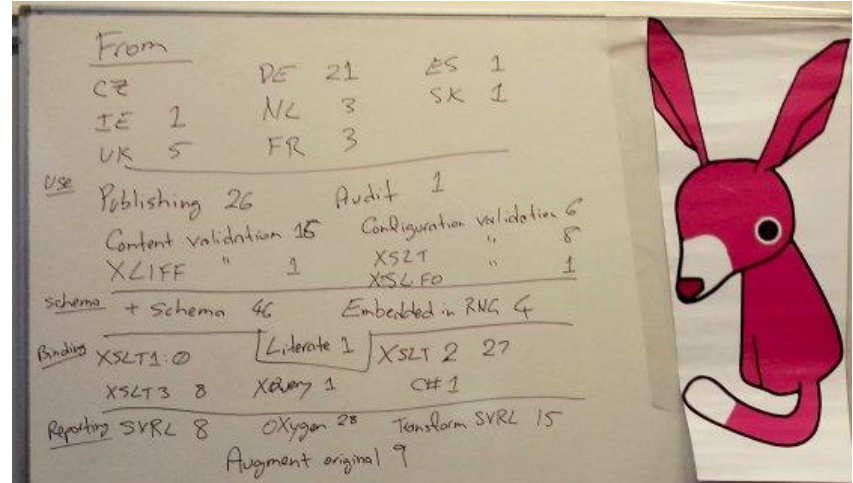 From
CZ DE 21 ES 1
IE 1 NL 3 SK 1
UK 5 FR 3
Use Publishing 26 Audit 1
Content validation 15 Configuration validation 6
XLIFF " 1 XSLT " 8
XSL FO " 1
Schema + Schema 46 Embedded in RNG 4
Binding XSLT1: 0 Literate 1 XSLT 2 27
XSLT3 8 XQuery 1 C# 1
Reporting SVRL 8 OXygen 28 Transform SVRL 15
Augment original 9